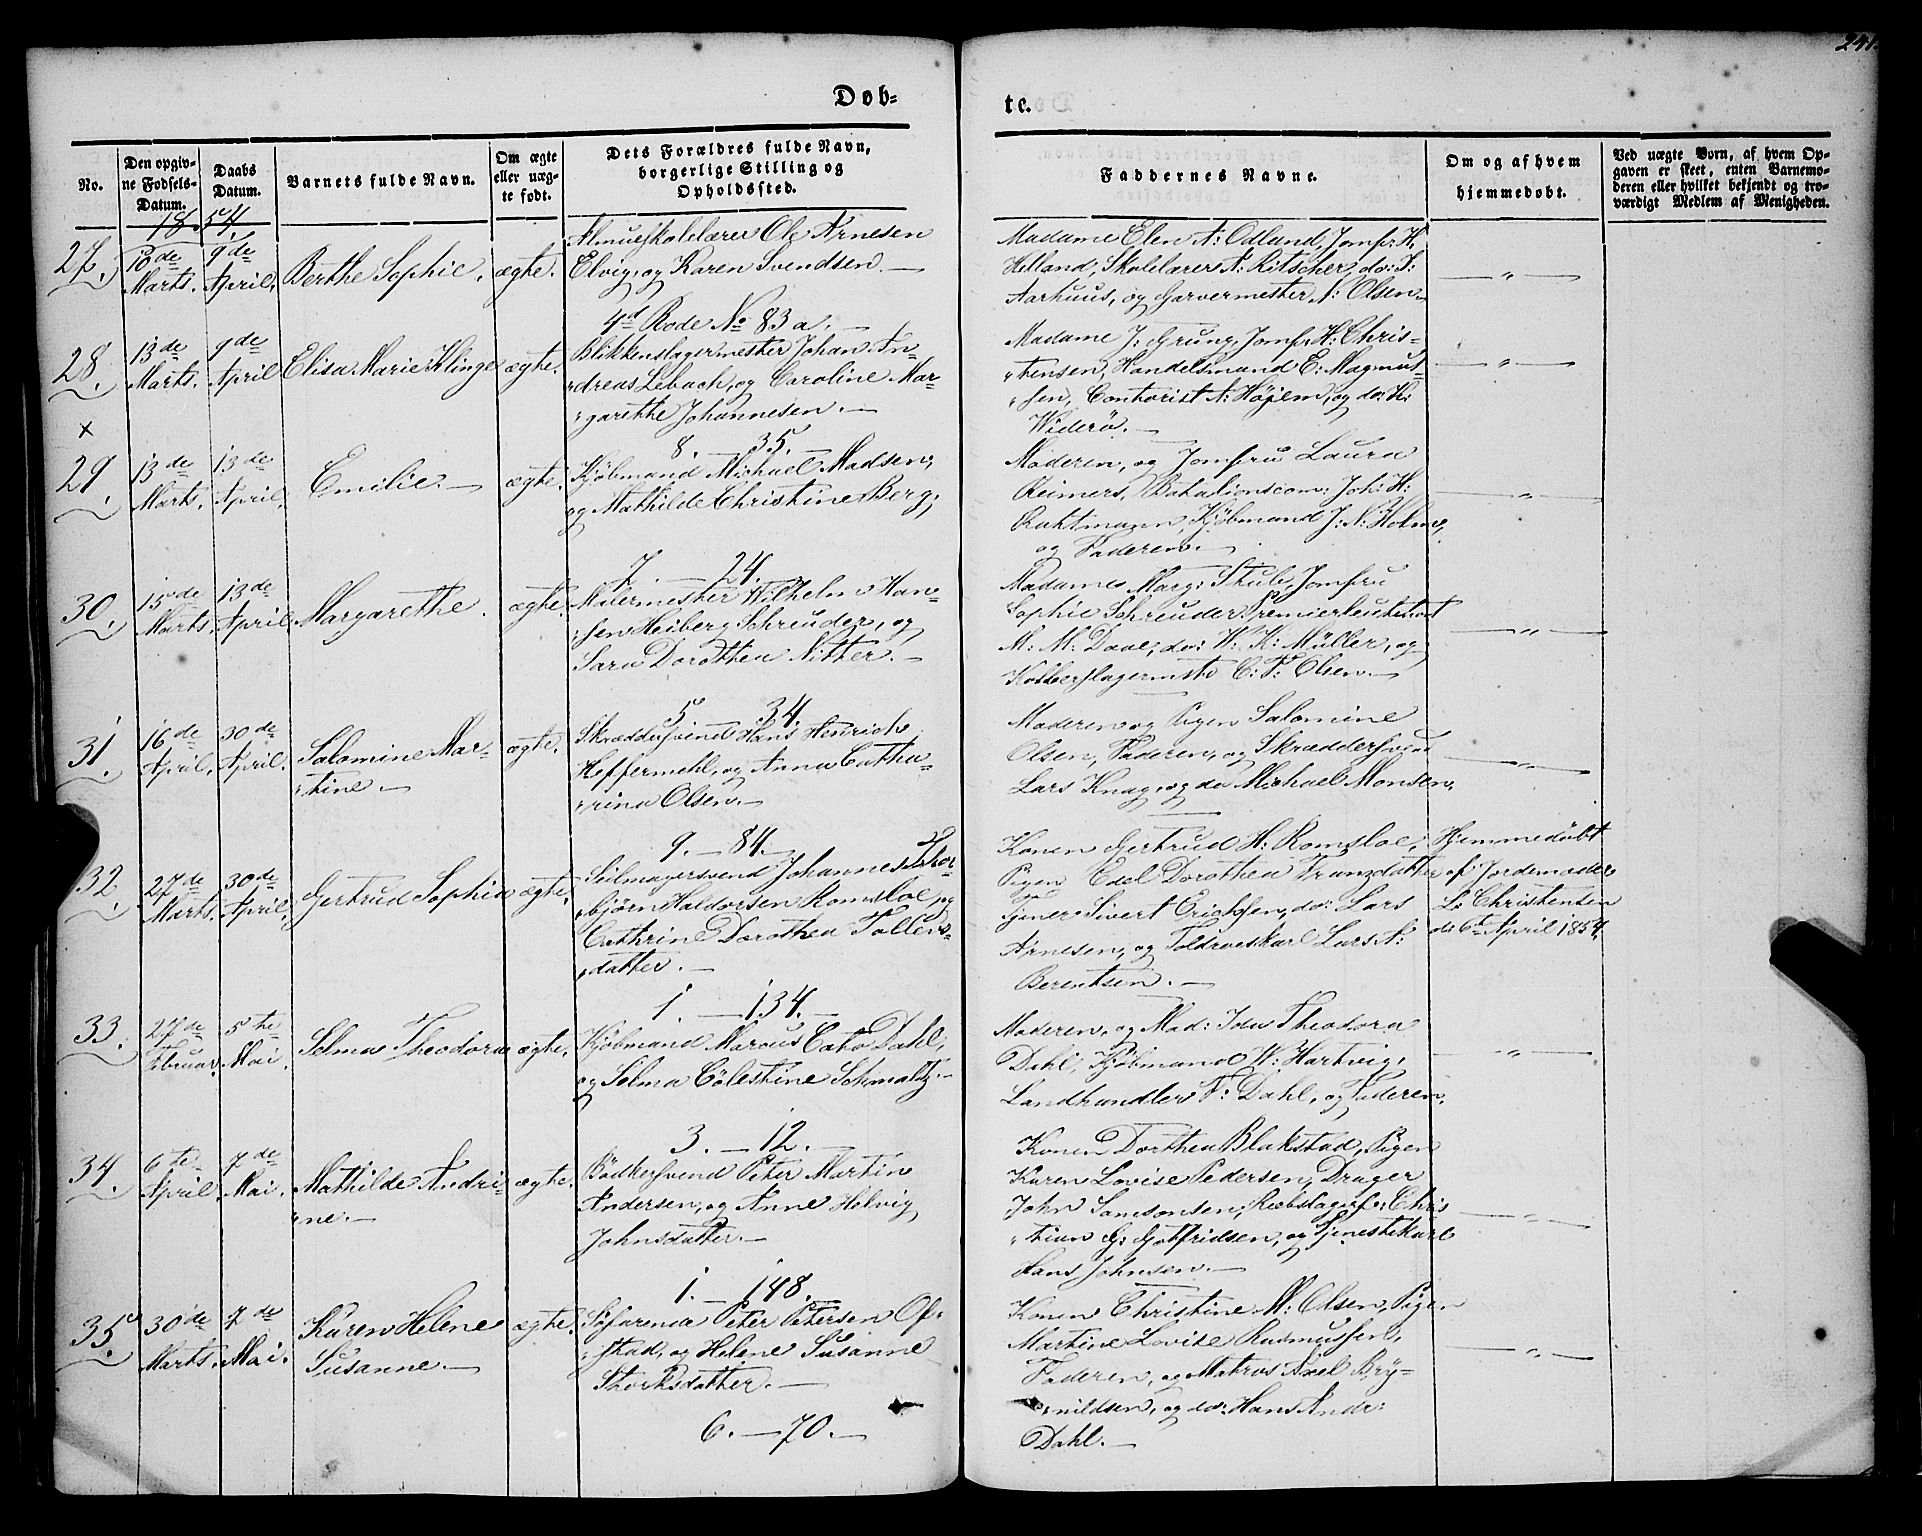 241.
Døb-
te.
No.
Den opgiv-
ne Fødsels-
Datum.
Daabs
Datum.
Barnets fulde Navn.
Om ægte
eller uæg-
te født.
Dets Forældres fulde Navn,
borgerlige Stilling og
Opholdssted.
Faddernes Navne.
Om og af hvem
hjemmedøbt.
Ved uægte Børn, af hvem Op-
gaven er skeet, enten Barnemo-
deren eller hvilket bekjendt og tro-
værdigt Medlem af Menigheden.
1854.
27.
10de
Marts.
9de
April.
Berthe Sophie.
ægte.
Almueskolelærer Ole Arnesen
Elvig, og Karen Svendsen.
4d Rode No 83 a.
Madame Elen A: Odland, Jomfr: H.
Helland, Skolelærer A: Ritscher, do: I:
Aarhuus, og Garvermester N: Olsen.
28.
13de
Marts.
9de
April
Elisa Marie Klinge
ægte.
Blikkenslagermester Johan An-
dreas Lebach, og Caroline Mar-
garethe Johannesen.
8. 35.
Madame J: Grung, Jomfr. H: Chris-
tensen, Handelsmand E: Magnus-
sen, Contorist A: Højem, og do: H:
Widerø.
x
29.
13de
Marts.
13de
April.
Emilie.
ægte.
Kjøbmand Michael Madsen,
og Mathilde Christine Berg,
7. 24.
Moderen, og Jomfru Laura
Reimers, Batalionscom: Joh: H:
Ruhtmann, Kjøbmand J: N: Holme,
og Faderen.
30.
15de
Marts.
13de
April.
Margarethe.
ægte.
Malermester Wilhelm Han-
sen Heiberg Schreuder, og
Sara Dorothea Nitter.
5 34.
Madame Marg: Stub, Jomfru
Sophie Schreuder Premierleutenant
M: M: Daae, do: W: K: Müller, og
Kobberslagermstr C: P: Olsen.
31.
16de
April.
30de
April.
Salomine Mar-
tine.
ægte.
Skræddersvend Hans Henrich
Heffermehl, og Anna Catha-
rina Olsen.
9. 84.
Moderen og Pigen Salomine
Olsen, Faderen, og Skræddersvend
Lars Knag, og do Michael Monsen.
32.
27de
Marts.
30de
April.
Gertrud Sophia
ægte.
Seilmagersvend Johannes Thor-
bjørn Haldorsen Romsloe, og
Cathrine Dorothea Tollevs-
datter.
1. 134.
Konen Gertrud H: Romsloe,
Pigen Edel Dorothea Franzdatter
Tjener Sivert Erichsen, do: Lars
Arnesen, og Toldroeskarl Lars A:
Berentsen.
Hjemmedøbt
af Jordemoder
L: Christensen
d: 6te April 1854.
33.
27de
Februar.
5te
Mai.
Selma Theodora
ægte.
Kjøbmand Marcus Cato Dahl,
og Selma Cölestine Schmaltz.
3. 12.
Moderen, og Mad: Ida Theodora
Dahl, Kjøbmand W: Hartvig,
Landhandler F: Dahl, og Faderen.
34.
6te
April.
7de
Mai.
Mathilde Andri-
ne.
ægte.
Bødkersvend Peter Martin
Andersen, og Anne Helvig
Johnsdatter.
1. 148.
Konen Dorthea Blakstad, Pigen
Karen Lovise Pedersen, Drager
John Samsonsen, Rebslagersv: Chris
tian G: Gotfridsen, og Tjenestekarl
Hans Johnsen.
35.
30de
Marts.
7de
Mai.
Karen Helene
Susanne.
ægte.
Søfarende Peter Petersen Of-
stad, og Helene Susanne
Storksdatter.
6. 70.
Konen Christine M: Olsen, Pigen
Martine Lovise Rasmussen,
Faderen, og Matros Axel Bry-
nildsen, og do: Hans Andr:
Dahl.